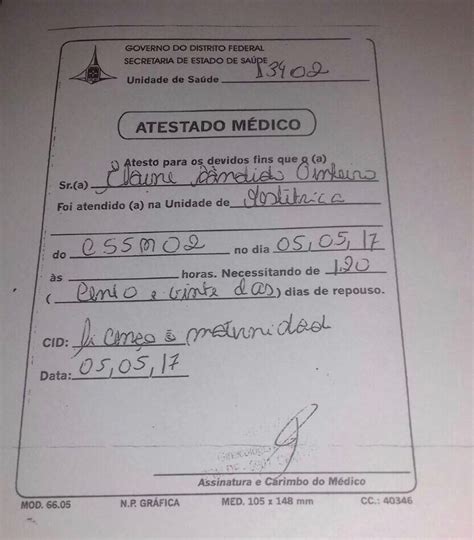 GOVERNO DO DISTRITO FEDERAL
SECRETARIA DE ESTADO DE SAÚDE
Unidade de Saúde 13402
ATESTADO MÉDICO
Atesto para os devidos fins que o (a)
Sr.(a) Elaine Cândido
Foi atendido (a) na Unidade de Obstétrica
do CSSM02 no dia 05,05,17
às horas. Necessitando de 120
(Cento e vinte dias) dias de repouso.
CID: licença maternidad
Data: 05,05,17
Assinatura e Carimbo do Médico
MOD. 66.05 N.P. GRÁFICA MED. 105 x 148 mm CC.: 40346